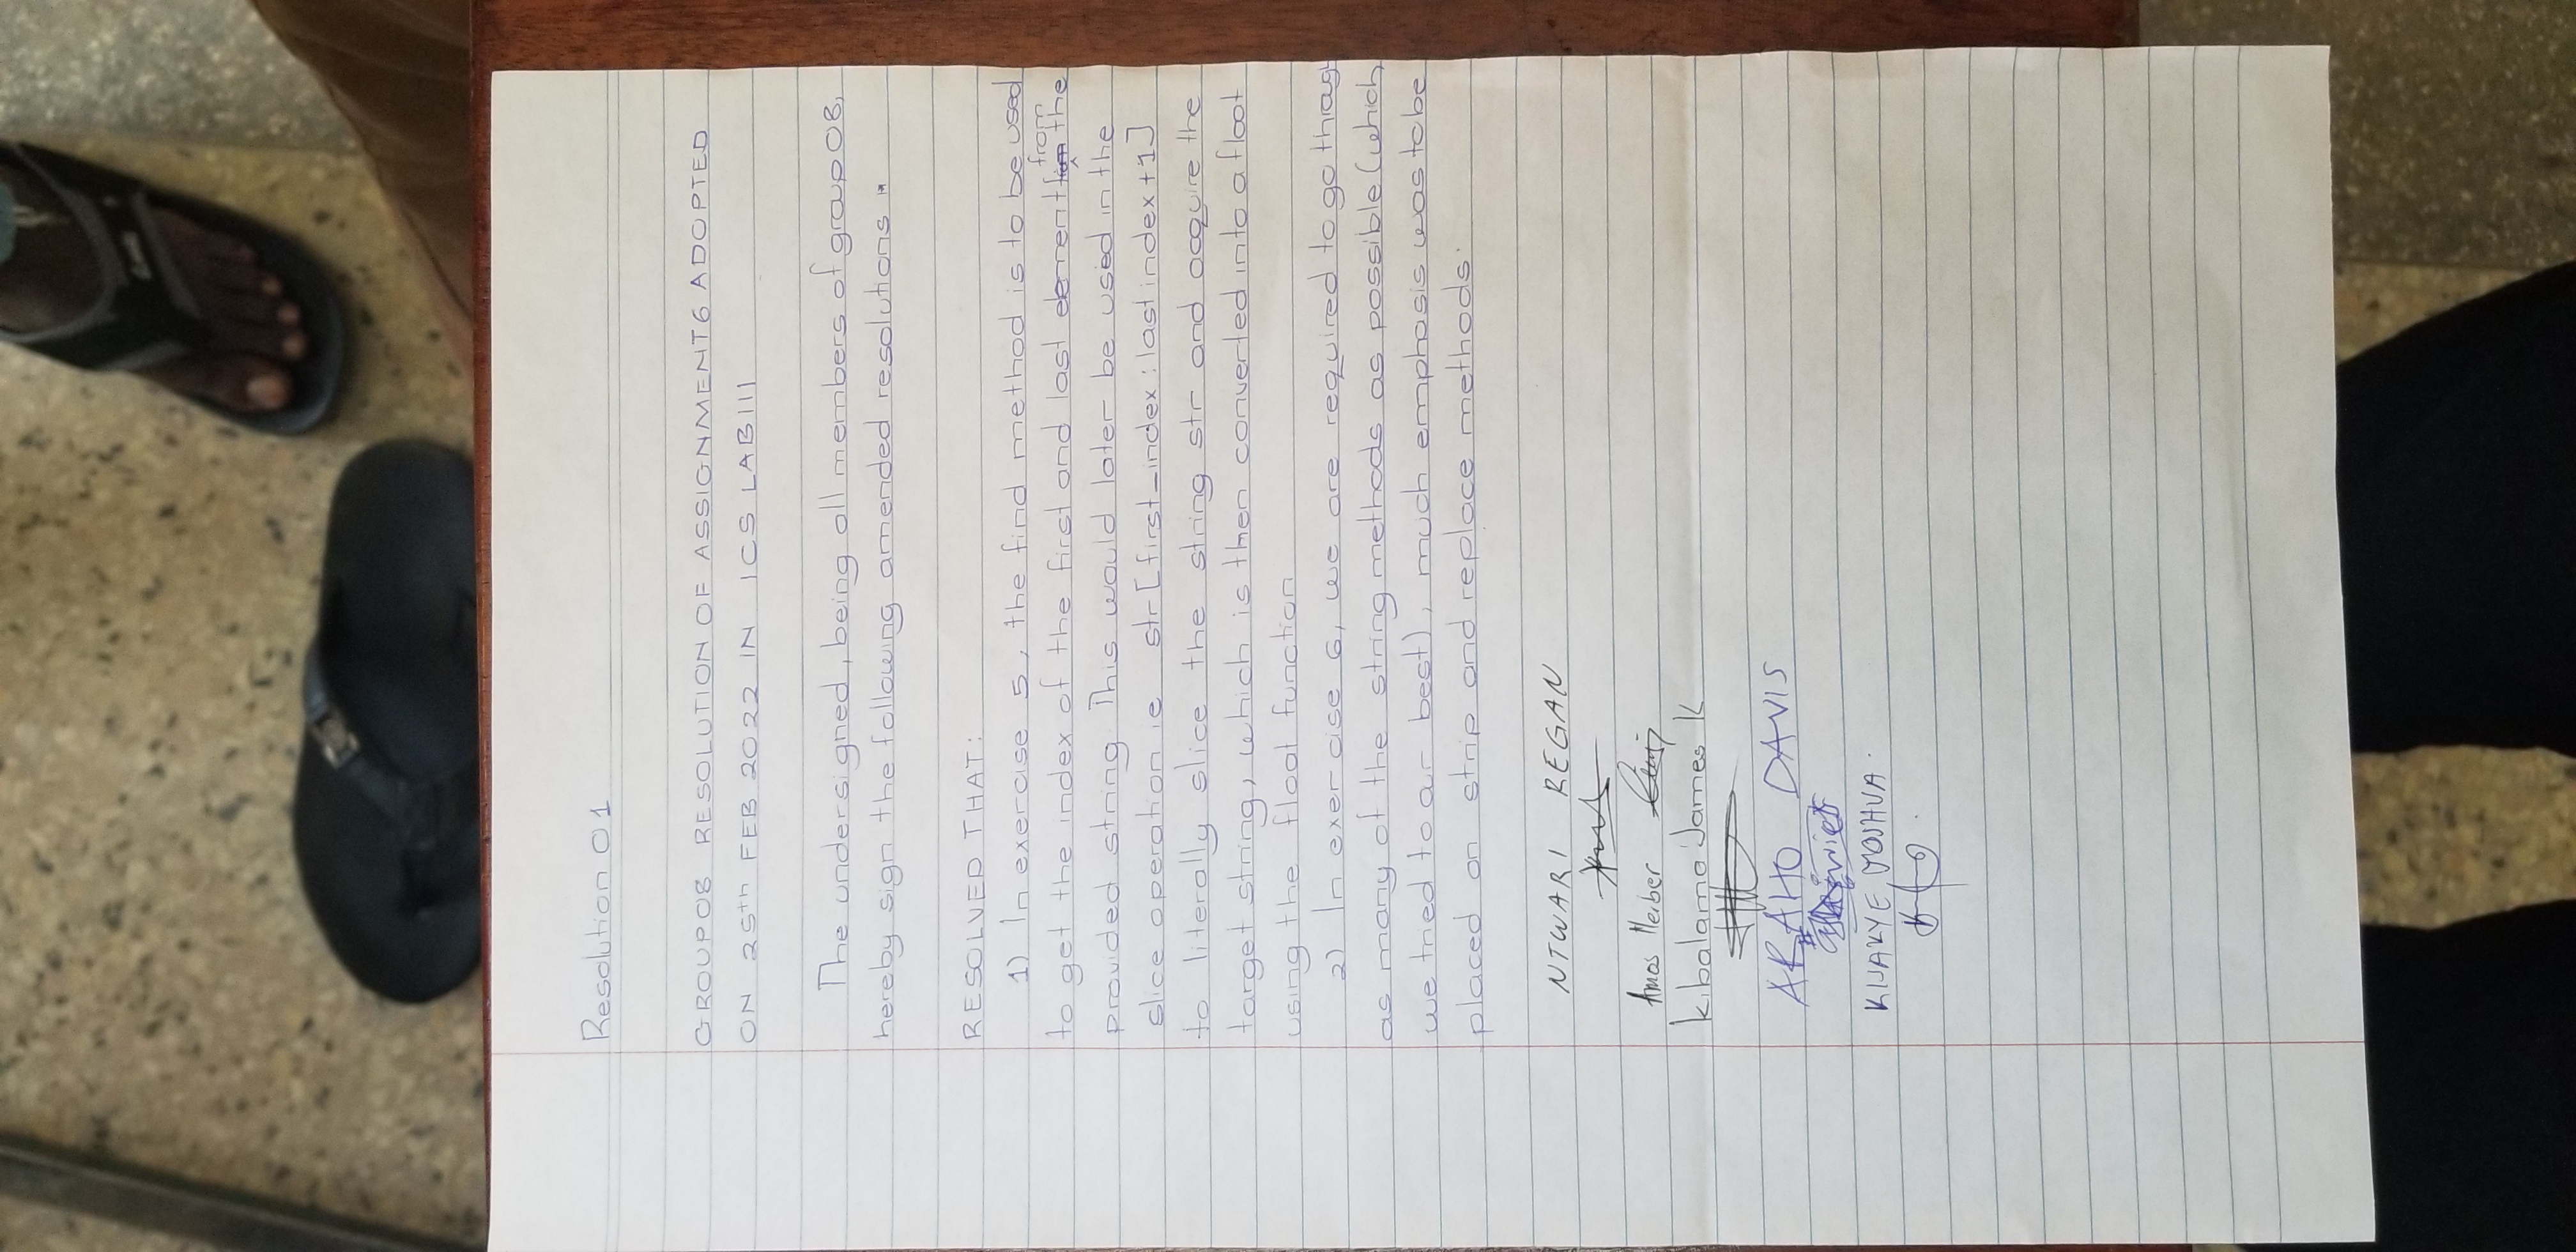 Resolution 01
GROUP08 RESOLUTION OF ASSIGNMENT6 ADOPTED
ON 25th FEB 2022 IN ICS LAB III
The undersigned, being all members of group 08,
hereby sign the following amended resolutions
RESOLVED THAT:
1) In exercise 5, the find method is to be used
to get the index of the first and last element from the
provided string. This would later be used in the
slice operation ie str[first_index:last index+1]
to literally slice the string str and acquire the
target string, which is then converted into a float
using the float function
2) In exercise 6, we are required to go throug
as many of the string methods as possible (which
we tried to our best), much emphasis was to be
placed on strip and replace methods.
NTWARI REGAN
Amos Herber
kibalama James K
DAVIS
JOSHUA